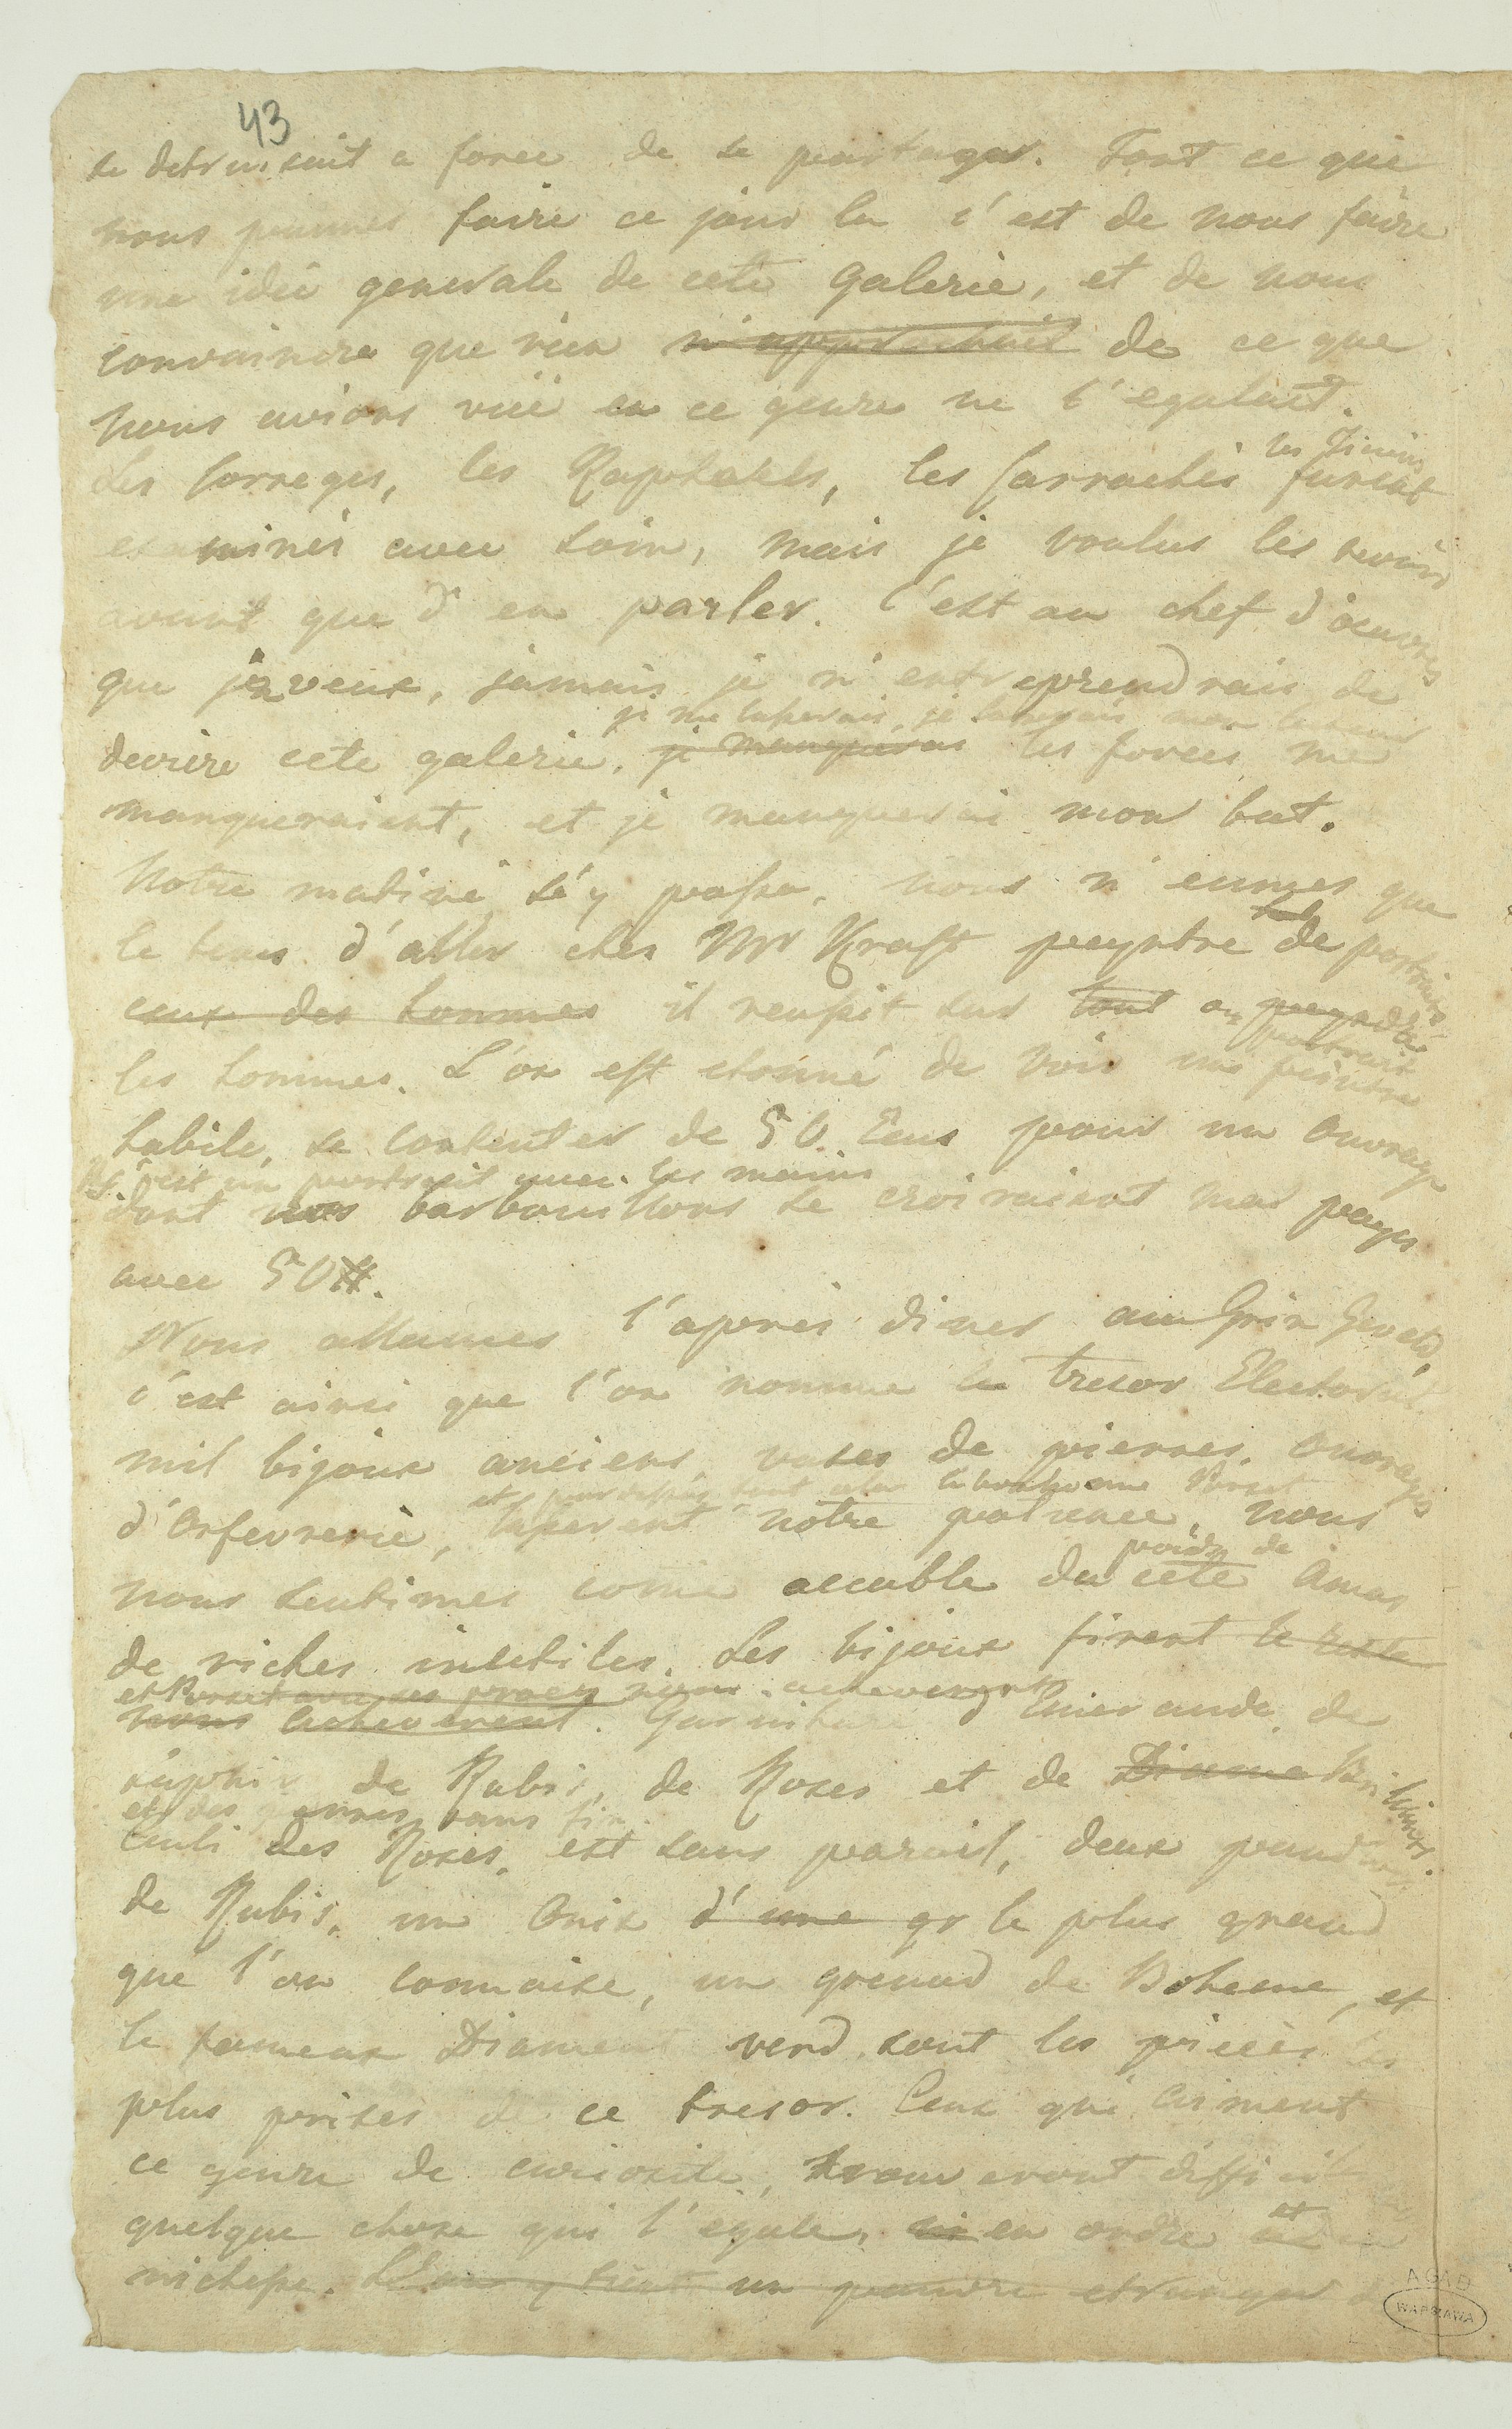 43
se detruisait a force de se partager. Tout ce que
nous pumes faire ce jour la c'est de nous faire
une idée generale de cete Galerie, et de nous
convaincre que rien n'approchait de ce que
nous avions vuë en ce genre ne l'egalait.
les Titiens
Les Correges, les Raphaels, les Carraches furent
examinés avec soin, mais je voulus les revoir
avant que d'en parler. C'est au chef d'oeuvres
que j'en veux, jamais je n'entreprendrais de
je me lasserais, je lasserais mon lecteur
decrire cete galerie, je manquerais les forces me
manqueraient, et je manquerai mon but.
Notre matiné s'y passa, nous n'eumes que
le tems d'aller ches Mr Kraft peyntre de portraits
ceux des hommes il reussit sur tout a peyndre
portrait
les hommes. L'on est etonné de voir un peintre
habile, se contenter de 50 Ecus pour un Ouvrage
c'est un portrait avec les mains
dont nos barbouillons se croiraient mal payes
avec 50#.
Nous allames l'apres diner au Grin Gevelb,
c'est ainsi que l'on nomme le tresor Electoral
mil bijoux anciens, vases de pierres, Ouvrages
et par dessus tout cela le bonhomme
d'Orfevrerie, lasserent notre patience, nous
poids de
nous sentimes come accablé du cete Amas
de riches inutiles. Les bijoux firent le reste
et avec ses nous acheverent
nous acheverent. Garniture d'Emeraude, de
saphir de Rubis, de Roses et de Diama Brillants.
et des sans fin.
Celui des Roses, est sans pareil, deux
de Rubis, un Onix d'une gr le plus grand
que l'on connaise, un grenad de Boheme, et
le fameux Diament verd sont les pieces les
plus prises de ce tresor. Ceux qui aiment
ce genre de curiosite, trouveront difficil
quelque chose qui l'egale, ni en ordre et en
richesse. L'on y un etranger
AGAD
WARSZAWA